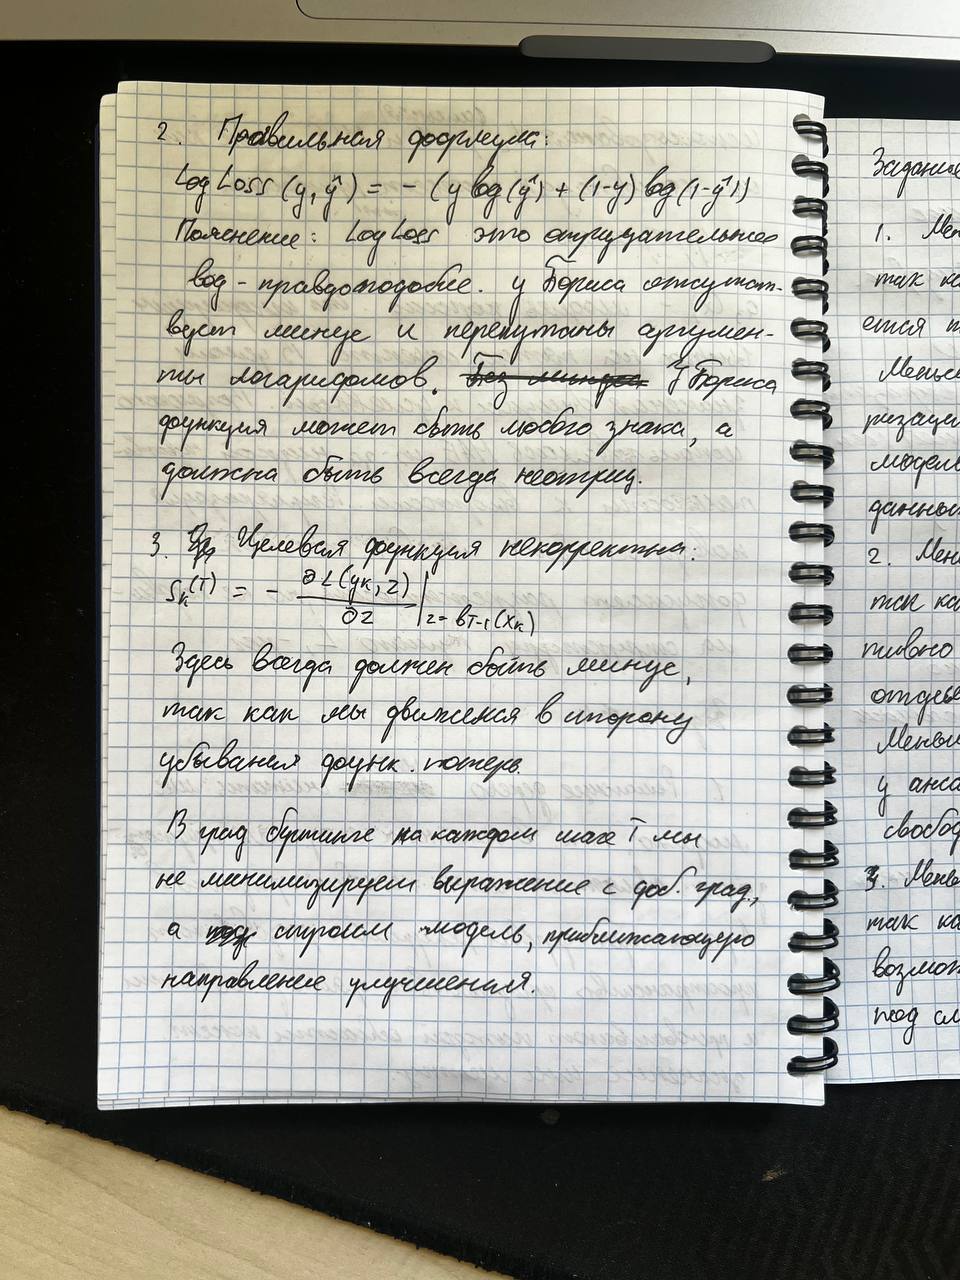 2. Правильная формула:
LogLoss (y, ŷ) = - (y log(ŷ) + (1-y) log(1-ŷ))
Пояснение: LogLoss это отрицательное
лог-правдоподобие. У Бориса отсутст-
вует минус и перепутаны аргумен-
ты логарифмов. Без минуса У Бориса
функция может быть любого знака, а
должна быть всегда неотриц.
3. Целевая функция некорректна:
S_k^(T) = - ∂L(y_k, z) / ∂z |_z = b_T-1(x_k)
Здесь всегда должен быть минус,
так как мы движемся в сторону
убывания функ. потерь.
В град бустинге на каждом шаге T мы
не минимизируем выражение с доб. град.,
а строим модель, приближающую
направление улучшения.
Задание
1. Мен
так ка
ется п
Меньс
ризаци
модель
данны
2. Мен
так ка
тивно
отдел
Меньш
у анса
свобод
3. Мень
так ка
возмож
под сл